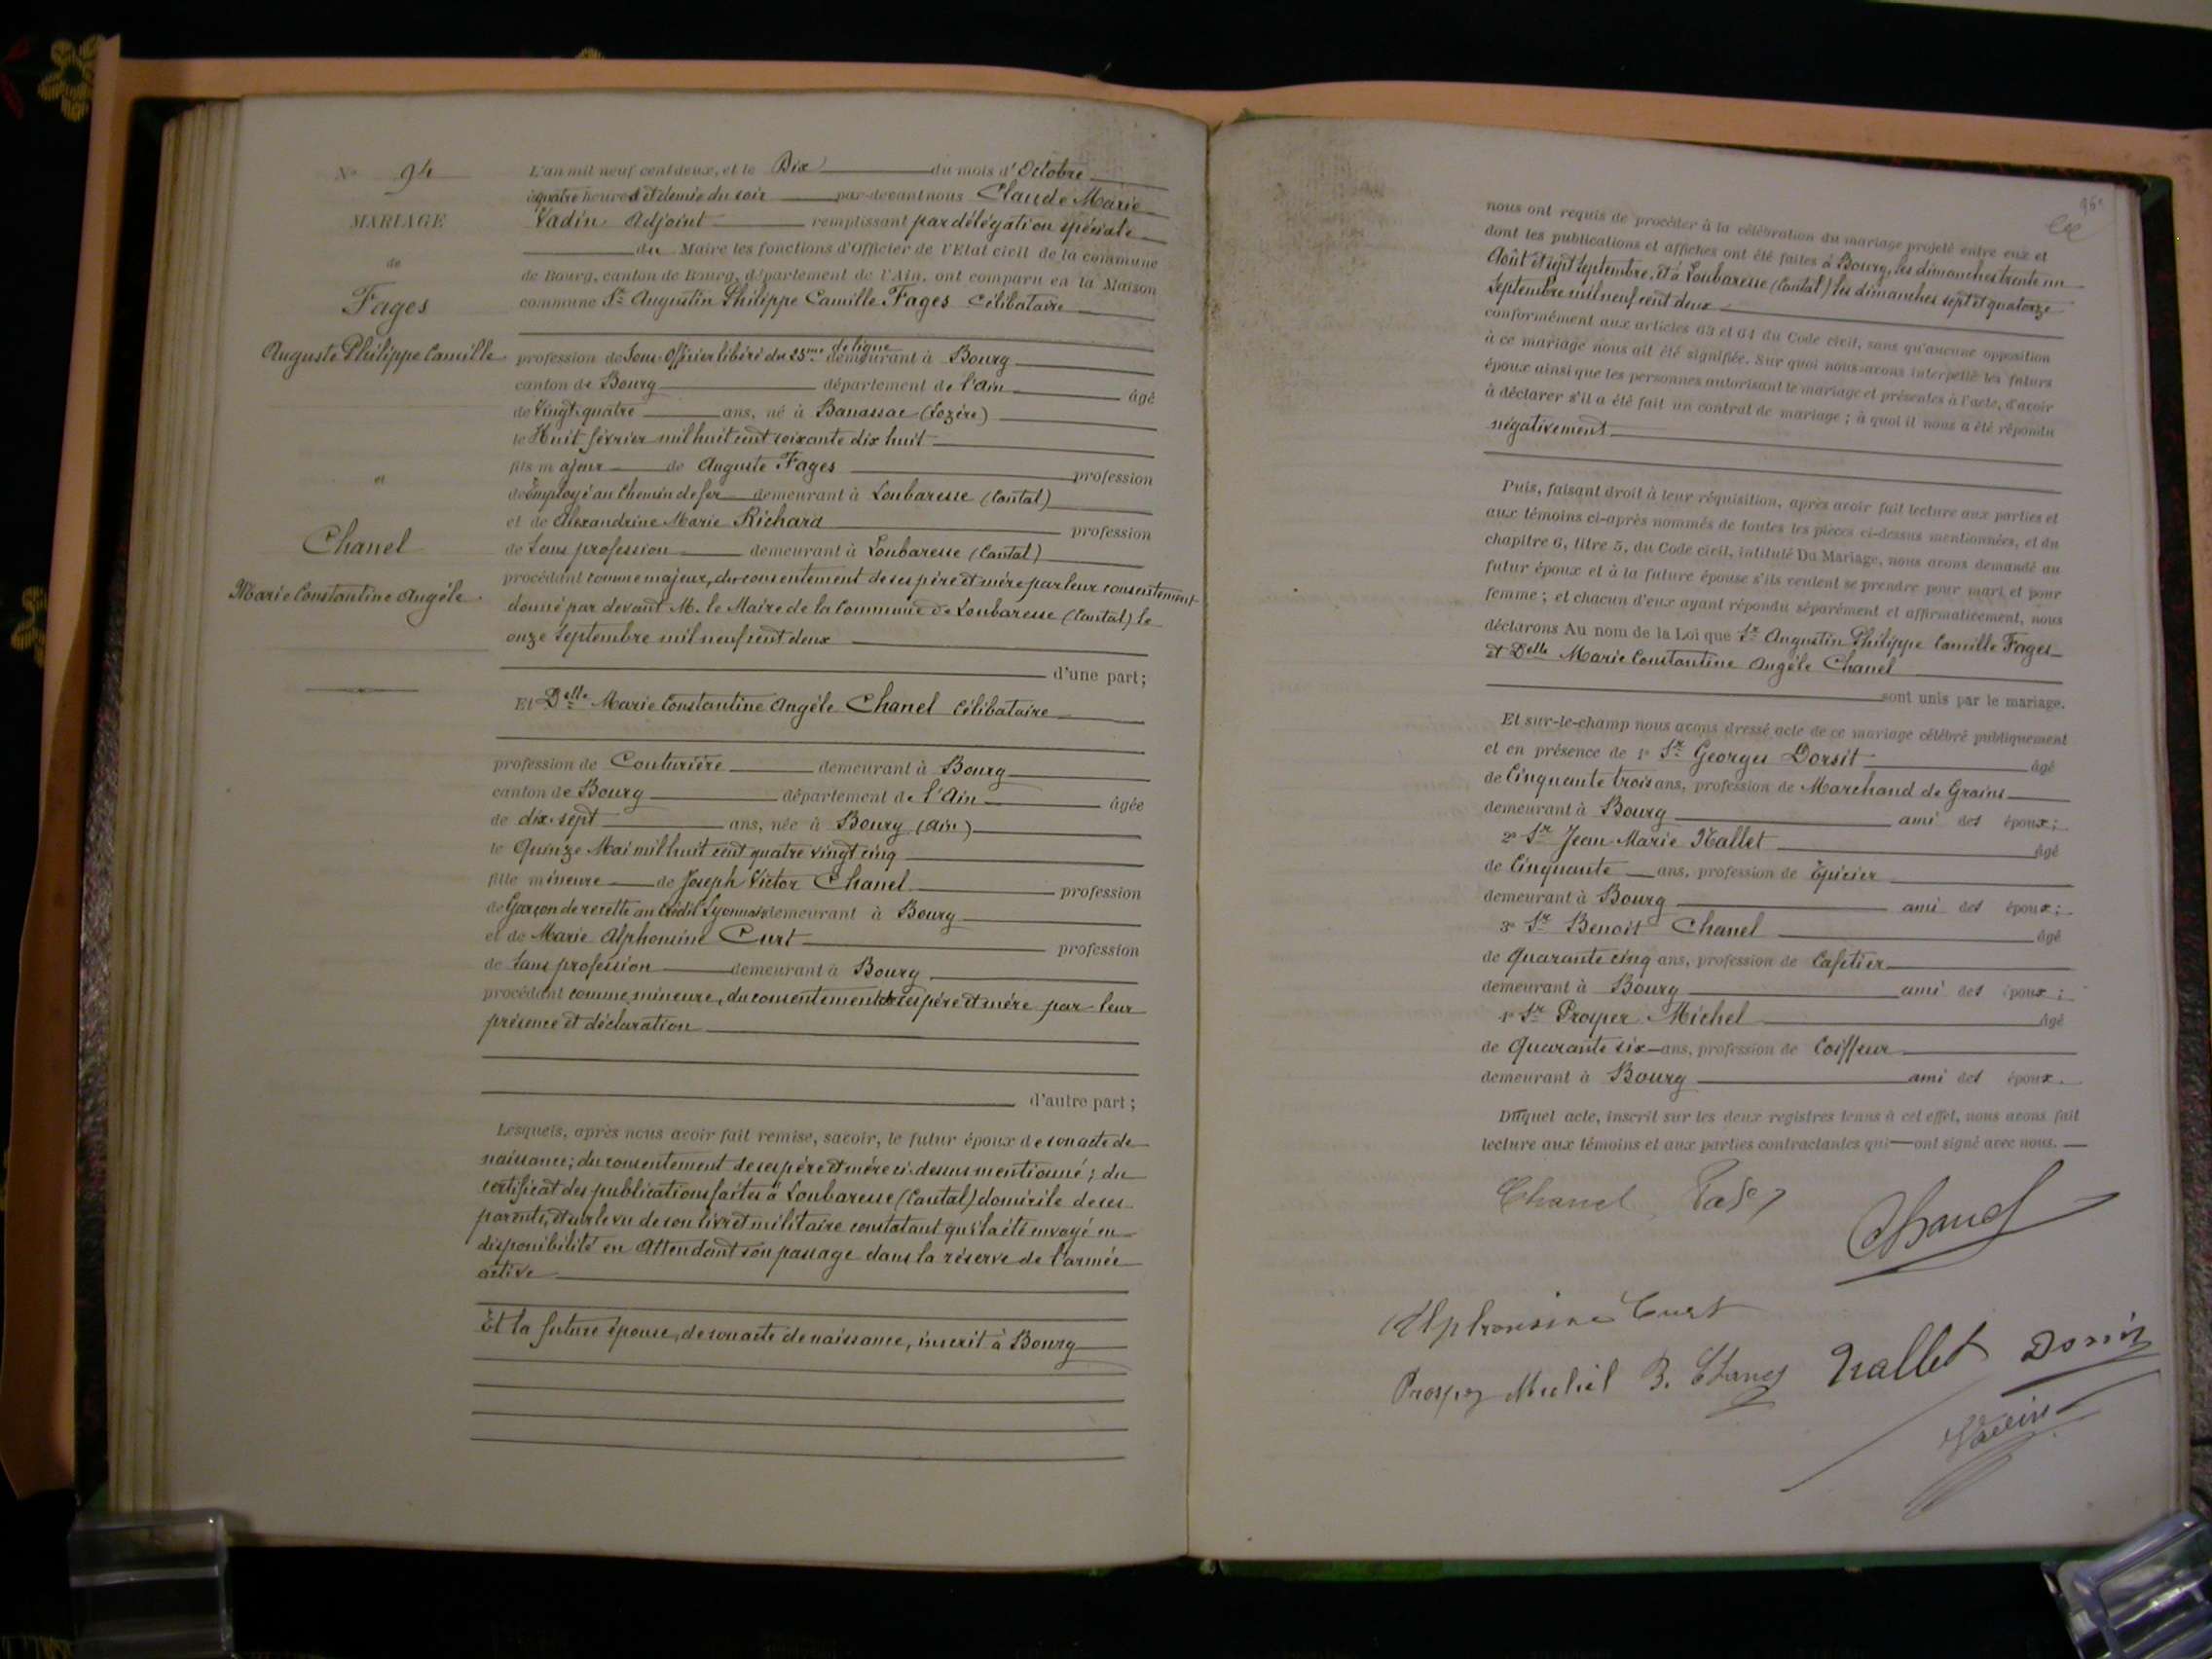 N° 94
MARIAGE
de
Fages
Auguste Philippe Camille
et
Chanel
Marie Constantine Angèle
L'an mil neuf cent deux, et le Dix du mois d'Octobre
à quatre heures et demie du soir par-devant nous Claude Marie
Vadin Adjoint remplissant par délégation spéciale
du Maire les fonctions d'Officier de l'Etat civil de la commune
de Bourg, canton de Bourg, département de l'Ain, ont comparu en la Maison
commune Sr Augustin Philippe Camille Fages Célibataire
de ligne
profession de Sous-Officier libéré du 23me demeurant à Bourg
canton de Bourg département de l'Ain âgé
de Vingt-quatre ans, né à Banassac (Lozère)
le Huit février mil huit cent soixante dix huit
fils majeur de Auguste Fages profession
de Employé au Chemin de fer demeurant à Loubaresse (Cantal)
et de Alexandrine Marie Richard profession
de Sans profession demeurant à Loubaresse (Cantal)
procédant comme majeur, du consentement de ses père et mère par leur consentement
donné par devant M. le Maire de la Commune de Loubaresse (Cantal) le
onze Septembre mil neuf cent deux
d'une part;
Et Delle Marie Constantine Angèle Chanel Célibataire
profession de Couturière demeurant à Bourg
canton de Bourg département de l'Ain âgée
de dix-sept ans, née à Bourg (Ain)
le Quinze Mai mil huit cent quatre vingt cinq
fille mineure de Joseph Victor Chanel profession
de Garçon de recette au Crédit Lyonnais demeurant à Bourg
et de Marie Alphonsine Curt profession
de Sans profession demeurant à Bourg
procédant comme mineure, du consentement de ses père et mère par leur
présence et déclaration
d'autre part;
Lesquels, après nous avoir fait remise, savoir, le futur époux de son acte de
naissance; du consentement de ses père et mère ci-dessus mentionné; du
certificat des publications faites à Loubaresse (Cantal) domicile de ses
parents, et sur le vu de son livret militaire constatant qu'il a été envoyé en
disponibilité en Attendant son passage dans la réserve de l'armée
active
Et la future épouse, de son acte de naissance, inscrit à Bourg
95e
nous ont requis de procéder à la célébration du mariage projeté entre eux et
dont les publications et affiches ont été faites à Bourg, les dimanches trente un
Août et sept Septembre, et à Loubaresse (Cantal) les dimanches sept et quatorze
Septembre mil neuf cent deux
conformément aux articles 63 et 64 du Code civil, sans qu'aucune opposition
à ce mariage nous ait été signifiée. Sur quoi nous avons interpellé les futurs
époux ainsi que les personnes autorisant le mariage et présentes à l'acte, d'avoir
à déclarer s'il a été fait un contrat de mariage; à quoi il nous a été répondu
négativement
Puis, faisant droit à leur réquisition, après avoir fait lecture aux parties et
aux témoins ci-après nommés de toutes les pièces ci-dessus mentionnées, et du
chapitre 6, titre 5, du Code civil, intitulé Du Mariage, nous avons demandé au
futur époux et à la future épouse s'ils veulent se prendre pour mari et pour
femme; et chacun d'eux ayant répondu séparément et affirmativement, nous
déclarons Au nom de la Loi que Sr Augustin Philippe Camille Fages
et Delle Marie Constantine Angèle Chanel
sont unis par le mariage.
Et sur-le-champ nous avons dressé acte de ce mariage célébré publiquement
et en présence de 1° Sr Georges Dorsit âgé
de Cinquante trois ans, profession de Marchand de Grains
demeurant à Bourg ami des époux;
2° Sr Jean Marie Nallet âgé
de Cinquante ans, profession de Epicier
demeurant à Bourg ami des époux;
3° Sr Benoit Chanel âgé
de Quarante cinq ans, profession de Cafetier
demeurant à Bourg ami des époux;
4° Sr Prosper Michel âgé
de Quarante six ans, profession de Coiffeur
demeurant à Bourg ami des époux.
Duquel acte, inscrit sur les deux registres tenus à cet effet, nous avons fait
lecture aux témoins et aux parties contractantes qui ont signé avec nous.
Chanel Fages
Chanel
Alphonsine Curt
Prosper Michel B. Chanel Nallet Dorsit
Vadin